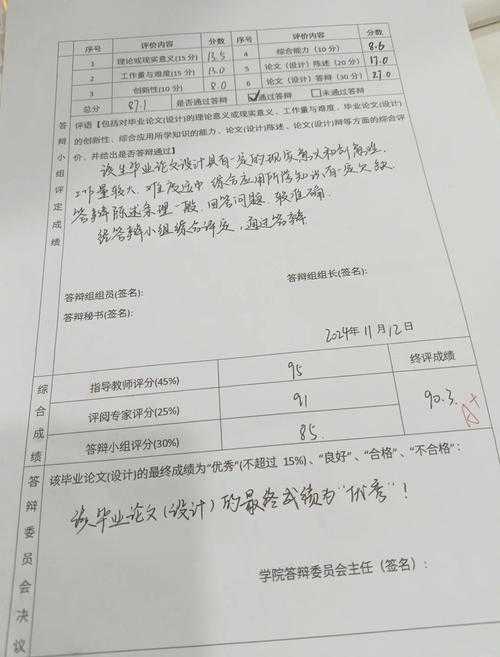 序号 评价内容 分数 序号 评价内容 分数
1 理论或现实意义(15分) 13.5 4 综合能力（10分） 8.6
2 工作量与难度(15分) 13.0 5 论文（设计）陈述（20分） 17.0
3 创新性(10分) 8.0 6 论文（设计）答辩（30分） 27.0
总分 87.1 是否通过答辩 ☑通过答辩 □未通过答辩
答辩小组评定成绩
评语【包括对毕业论文(设计)的理论意义或现实意义、工作量与难度、毕业论文(设计)
的创新性、综合应用所学知识的能力、论文(设计)陈述、论文(设计)辩等方面的综合评
价，并给出是否答辩通过】
该生毕业论文设计具有一定的现实意义和创新性.
工作量较大.难度适中 综合应用所学知识有一定欠缺.
答辩陈述条理一般.回答问题 较准确.
经答辩小组综合评定，通过答辩
答辩组组员(签名): 答辩组组长(签名):
答辩秘书(签名):
2024年11月12日
综合成绩
指导教师评分(45%) 95 终评成绩
评阅专家评分(25%) 91 90.3. A+
答辩小组评分(30%) 85.
答辩委员会决议
该毕业论文(设计)的最终成绩为“优秀”(不超过 15%)、“良好”、“合格”、“不合格”:
该毕业论文(设计)的最终成绩为"优秀"!
学院答辩委员会主任（签名）: